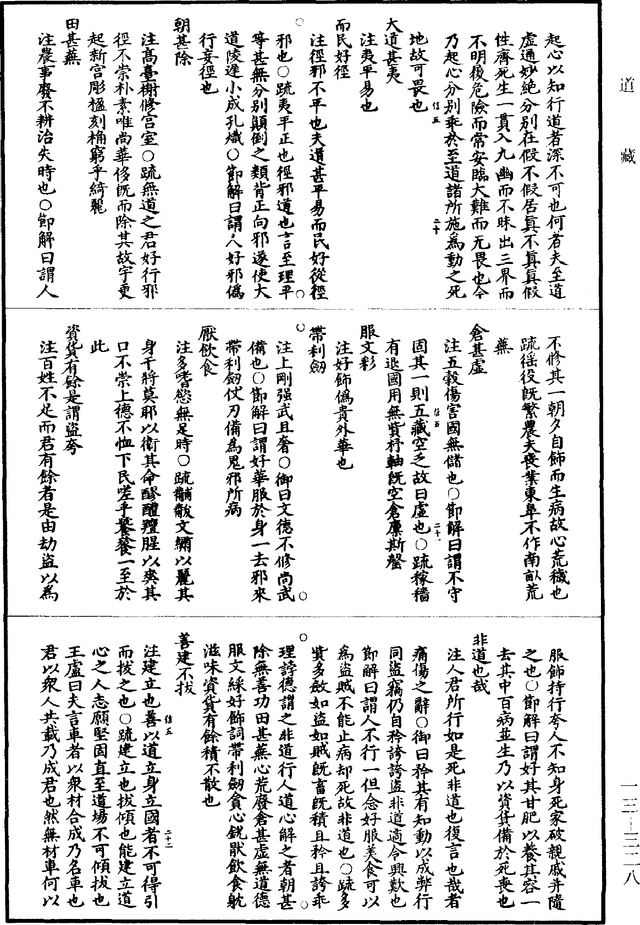 道藏
起心以知行道者深不可也何者夫至道
虛通妙絶分別在假不假居真不真真假
性齊死生一貫入九幽而不昧出三界而
不明復危險而常安臨大難而无畏也今
乃起心分別乖於至道諸所施為動之死
地故可畏也
大道甚夷
注夷平易也
而民好徑
注徑邪不平也夫道甚平易而民好從徑
邪也○疏夷平正也徑邪道也言至理平
等甚無分別顛倒之類背正向邪遂使大
道陵遲小成孔熾○節解曰謂人好邪偽
行妄徑也
朝甚除
注高臺榭修宮室○疏無道之君好行邪
徑不崇朴素唯尚華侈旣而除其故宇更
起新宮彫楹刻桷窮乎綺麗
田甚蕪
注農事廢不耕治失時也○節解曰謂人
不修其一朝夕自飾而生病故心荒穢也
疏徭役旣繁農夫喪業東皐不作南畝荒
蕪
倉甚虛
注五穀傷害國無儲也○節解曰謂不守
固其一則五藏空之故曰虛也○疏稼穡
有退國用無貲杼軸旣空倉廩斯罄
服文彩
注好飾偽貴外華也
帶利劒
注上剛强武且奢○御曰文德不修尚武
備也○節解曰謂好華服於身一去邪來
帶利劒仗刃備為鬼邪所病
厭飲食
注多嗜慾無足時○疏黼黻文繡以麗其
身干將莫耶以衛其命醪醴羶腥以爽其
口不崇上德不恤下民嗟乎饕餮一至於
此
資貨有餘是謂盜夸
注百姓不足而君有餘者是由劫盜以為
服飾持行夸人不知身死家破親戚并隨
之也○節解曰謂好其甘肥以養其容一
去其中百病並生乃以資貨備於死喪也
非道也哉
注人君所行如是死非道也復言也哉者
痛傷之辭○御曰矜其有知動以成弊行
同盜竊仍自矜誇誇盜非道適令興歎也
節解曰謂人不行一但念好服美食可以
為盜賊不能止病却死故非道也○疏多
貲多斂如盜如賊旣畜旣積且矜且誇乖
理誖德謂之非道行人道心解之者朝甚
除無善功田甚蕪心荒廢倉甚虛無道德
服文綵好飾詞帶利劒貪心銳厭飲食躭
滋味資貨有餘積不散也
善建不拔
注建立也善以道立身立國者不可得引
而拔之也○疏建立也拔傾也能建立道
心之人志願堅固直至道場不可傾拔也
王盧曰夫言車者以衆材合成乃名車也
君以衆人共載乃成君也然無材車何以
一三—三二八